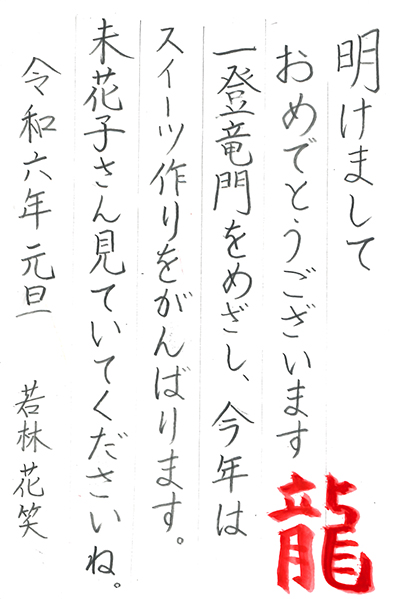 明けまして
おめでとうございます
一登竜門をめざし、今年は
スイーツ作りをがんばります。
未花子さん見ていてくださいね。
令和六年元旦
若林花笑
龍